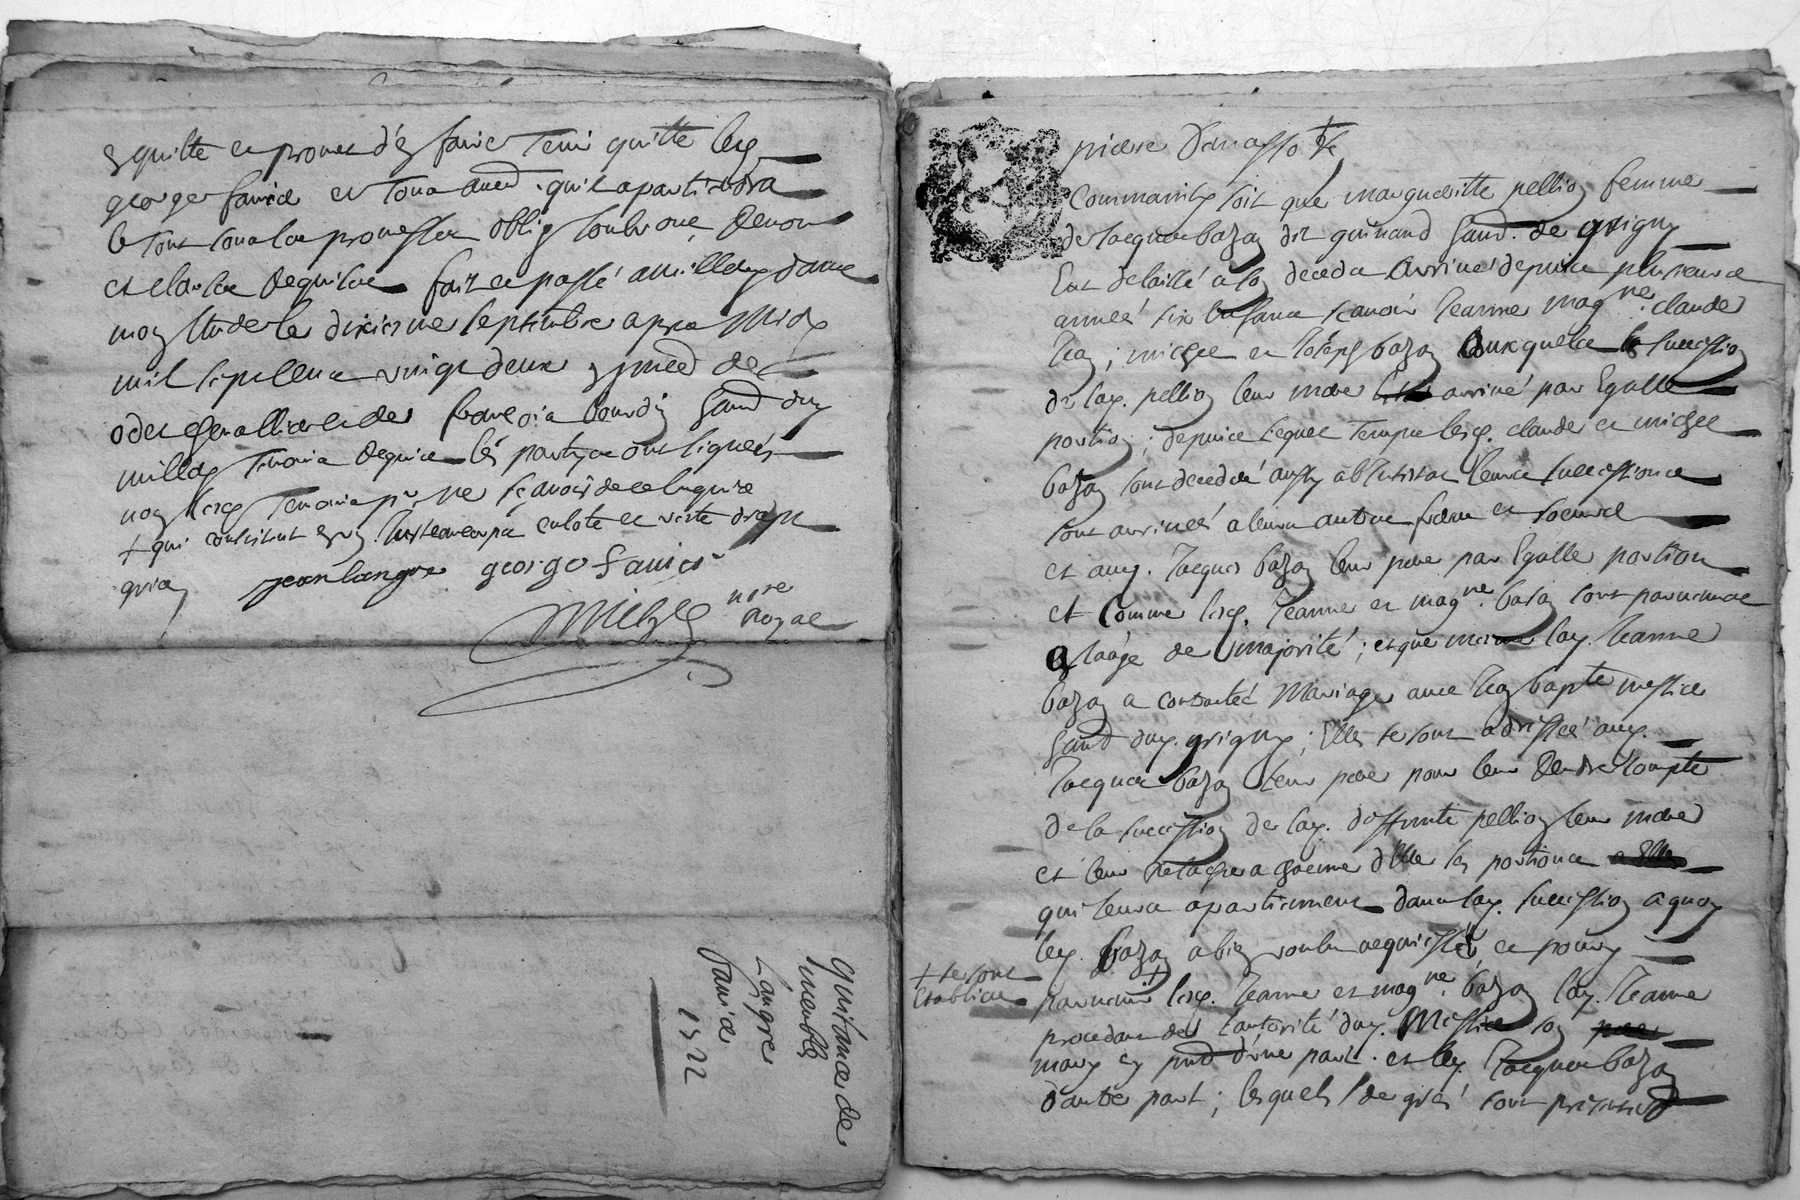 quitte et promet d'en faire tenir quitte led.
george faure et tous aud. qu'il apartiendra
le tout sous les promesses oblig soub
et clauses Requises fait et passé a milla
le dixieme septembre apres Midy
mil sept cens vingt deux en pnce de
françois bourdin hand dud
milla Temoin Requis les parties ont signées
non led Temoin pr ne sçavoir de ce Enquis
+ qui consistent en un culote et veste drap
gris jean langre george faure
Michel nore
Royal
Quitance de
Jucemble
Langre
faure
1722
Comme ainsy soit que margueritte pellion femme
de Jacques bazan dit guinand hand. de grigny
Eut delaissé a son decedz Arrivé depuis plusieurs
année six Enfans sçavoir Jeanne magne. claude
Jean ; michel et Joseph bazan Auxquels la succession
de lad. pellion leur mere arrivé par Egalle
portion ; depuis lequel Temps lesd. claude et michel
bazan sont decedéé aussy abJntestat leurs successions
sont arrivéés a leurs autres freres et soeurs
et aud. Jacques bazan leur pere par Egalle portion
et Comme lesd. Jeanne et magne. bazan sont parvenues
a laâge de majorité ; et que mesme lad. Jeanne
bazan a contracté Mariage avec Jean bapte
hand dud. grigny ; Elles se sont adressée aud.
Jacques bazan leur pere pour leur Rendre Compte
de la succession de lad. deffunte pellion leur mere
et leur Relacher a chacune d'Elle les portions
qui leurs apartiennent dans lad. succession a quoy
led. Bazan a bien voulu acquiessé, et pour y
+ se sont
Establies
parvenir + lesd. Jeanne et magne. bazan lad. Jeanne
procedant de l'autorité dud. son
mary cy pnt d'une part. et led. Jacques bazan
d'autre part ; lesquels de gré